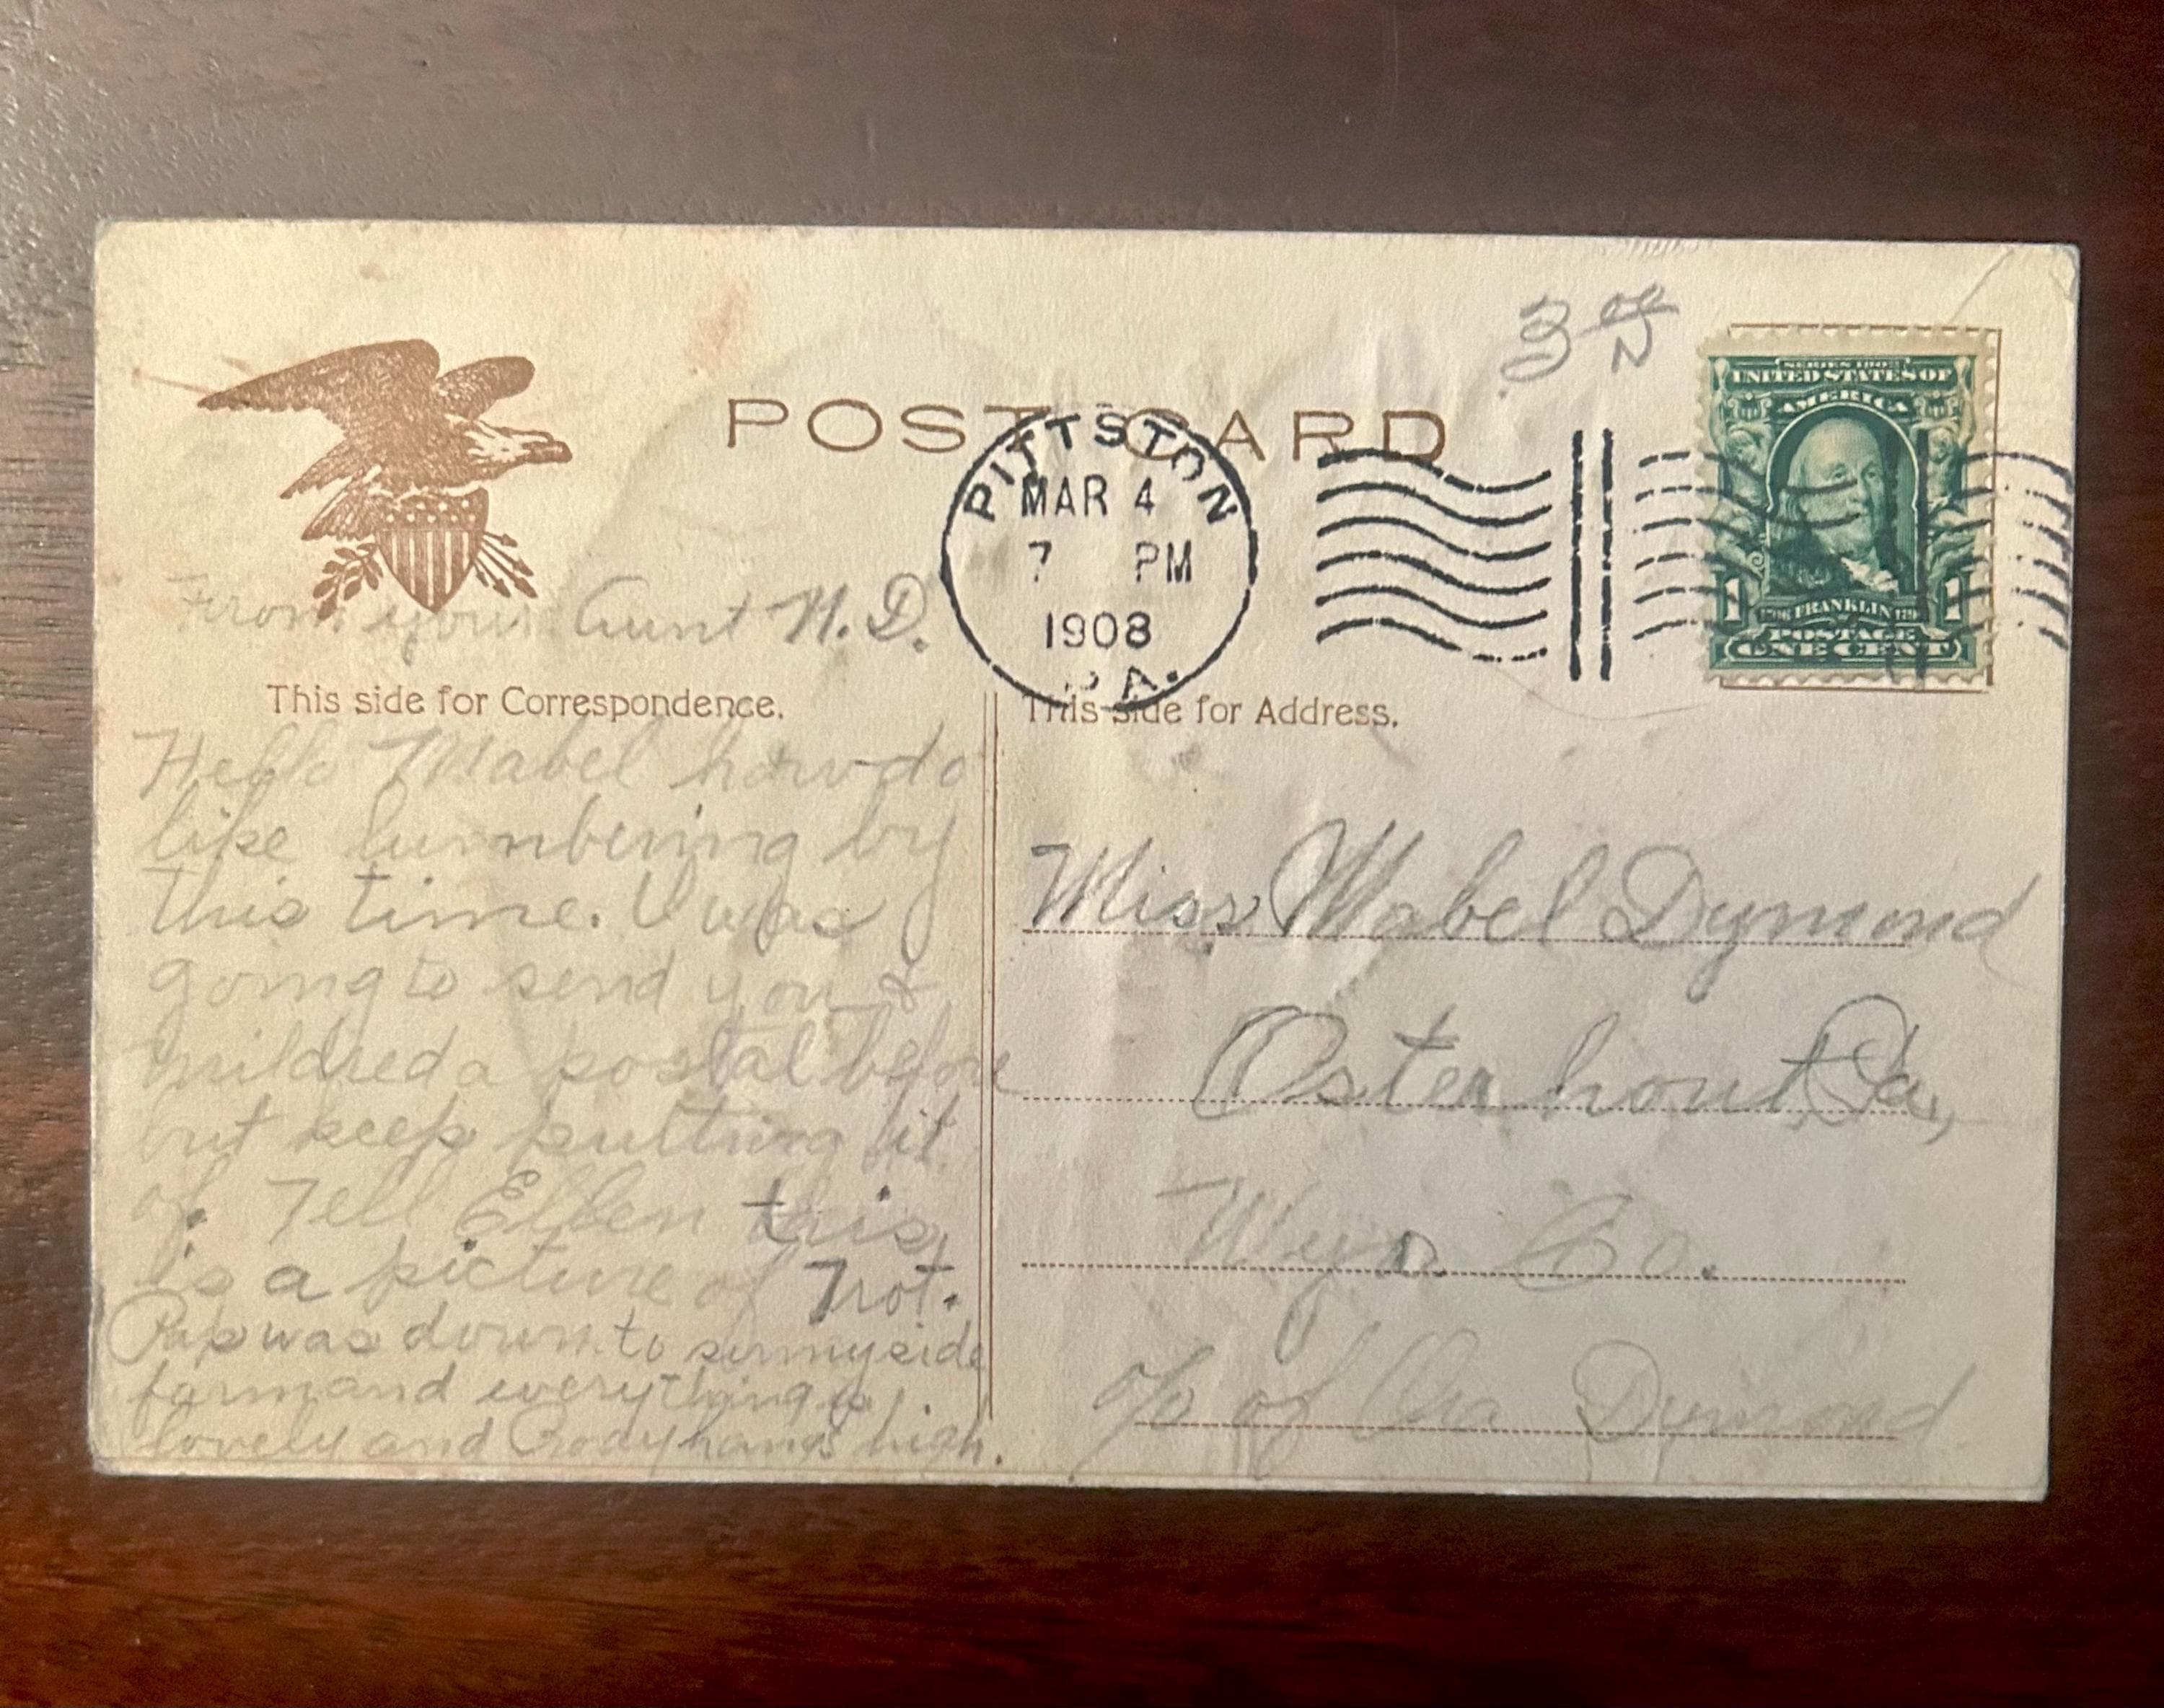 POST CARD
PITTSTON
MAR 4
7 PM
1908
PA.
SERIES 1902
UNITED STATES OF
AMERICA
1 FRANKLIN 1
POSTAGE
ONE CENT
From your Aunt N. D.
This side for Correspondence.
Hello Mabel how do
like lumbering by
this time. I was
going to send you &
mildred a postal before
but keep putting it
of. Tell Ellen this
is a picture of Trot.
Pap was down to sunnyside
farm and everything is
lovely and hangs high.
This side for Address.
Miss Mabel Dymond
Osterhout Pa,
Wyo Co.
c/o of Ira Dymond